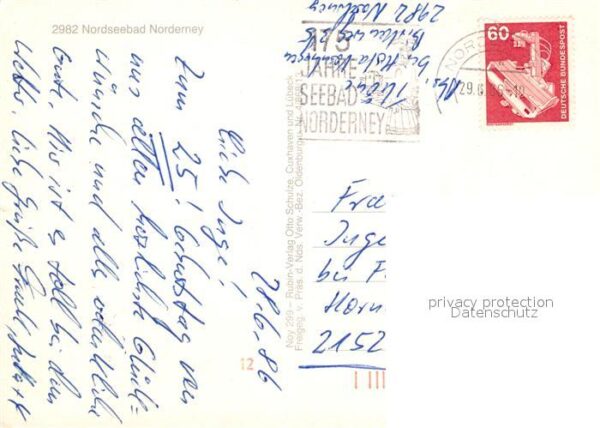 2982 Nordseebad Norderney
28.6.86
Liebe Inge!
Zum 25! Geburtstag von
uns allen herzliche Glück-
wünsche und alles erdenkliche
Gute, Hier ist es toll bei dem
Wetter, Liebe Grüße
Noy 299 – Rubin-Verlag Otto Schulze, Cuxhaven und Lübeck
Freigeg. v. Präs. d. Nds. Verw.-Bez. Oldenburg
12
175
JAHRE
SEEBAD
NORDERNEY
Abs.:
2982 Norderney
NORD
29.6.86-10
60
DEUTSCHE BUNDESPOST
Fra
Inge
bei F
Horn
2152
privacy protection
Datenschutz